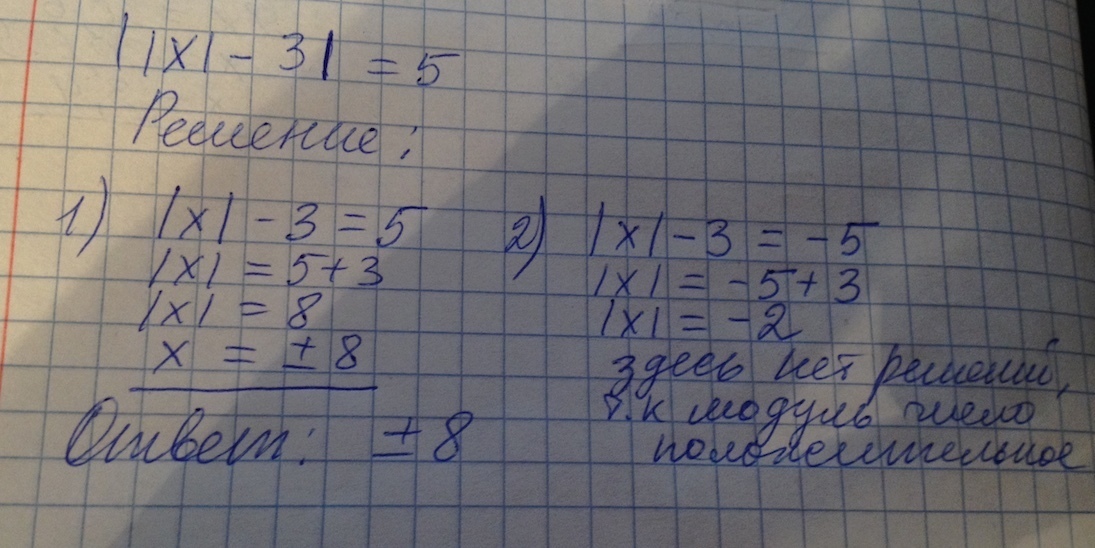 ||x| - 3| = 5
Решение:
1) |x| - 3 = 5
|x| = 5 + 3
|x| = 8
x = ± 8
Ответ: ± 8
2) |x| - 3 = -5
|x| = -5 + 3
|x| = -2
здесь нет решений,
т.к модуль число
положительное